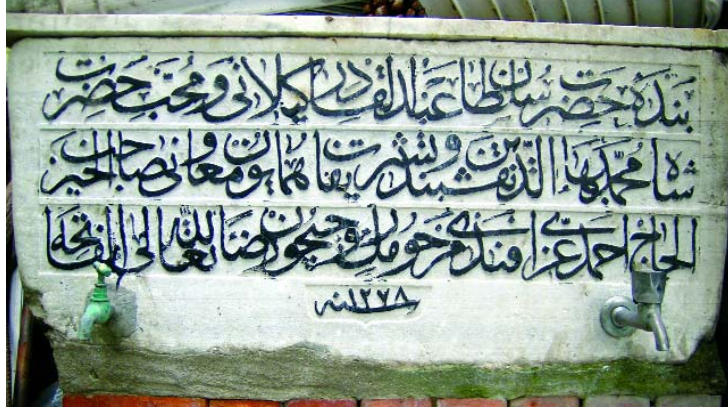 بنده حضرت سلطان عبدالقادر كيلانى و محب حضرت
شاه محمد بهاء الدين نقشبند و تشريفات همايون معاونى صاحب الخير
الحاج احمد عزى افندى مرحومك روحيچون رضاء لله تعالى الفاتحه
سنه ١٢٧٨